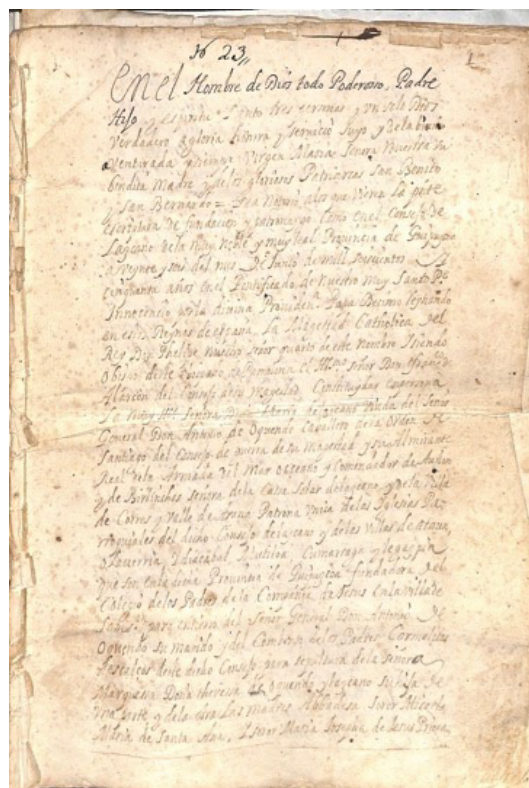 1623
1
En el Nombre de Dios todo Poderosso, Padre
Hijo y espiritu Santo tres personas y un solo Dios
Verdadero a gloria honrra y servicio suyo y de la bien
aventurada siempre Virgen Maria Señora nuestra su
bendita madre y de los gloriosos Patriarcas San Benito
y San Bernardo = Sea notorio a los que vieren la pnte
escritura de fundacion y patronazgo como en el Consejo de
Lazcano de la muy noble y muy leal Provincia de Guipuzcoa
a veynte y seis del mes de Junio de mill seiscientos y
cinquenta años en el Pontificado de nuestro muy Santo Pe
Innocencio por la divina Providen Papa Decimo reynando
en estos Reynos de españa La Magestad Catholica del
Rey Don Phelipe nuestro señor quarto de este nombre siendo
Obispo deste Obispado de Pamplona el señor Don
Alarcon del Consejo de su magestad Constituydas en persona
La muy señora Doña Maria de Lazcano viuda del señor
General Don Antonio de Oquendo Cavallero de la Orden de
Santiago del Consejo de guerra de su Magestad y su Almirante
Real de la Armada del Mar oceano y Comendador de
y de señora de la Casa solar de lazcano y de la Villa
de Corres y Valle de Arana Patrona unica de las Iglesias Pa
rroquiales del dicho Consejo de lazcano y de las villas de Ataun,
Olaverria, Ydiacabal, Mutiloa, Cumarraga y legazpia
que son en la dicha Provincia de Guipuzcoa fundadora del
Colegio de los Padres de la Compañia de Jesus en la villa de
para entierro del Señor General Don Antonio de
Oquendo su marido y del Combento de los Padres Carmelitas
descalços deste dicho Consejo para sepultura de la señora
Marquesa Doña theresa de oquendo y lazcano su hija de
una parte y de la otra Las madres Abbadesa Soror
Maria de Santa Ana, Soror Maria Josepha de Jesus Priora,